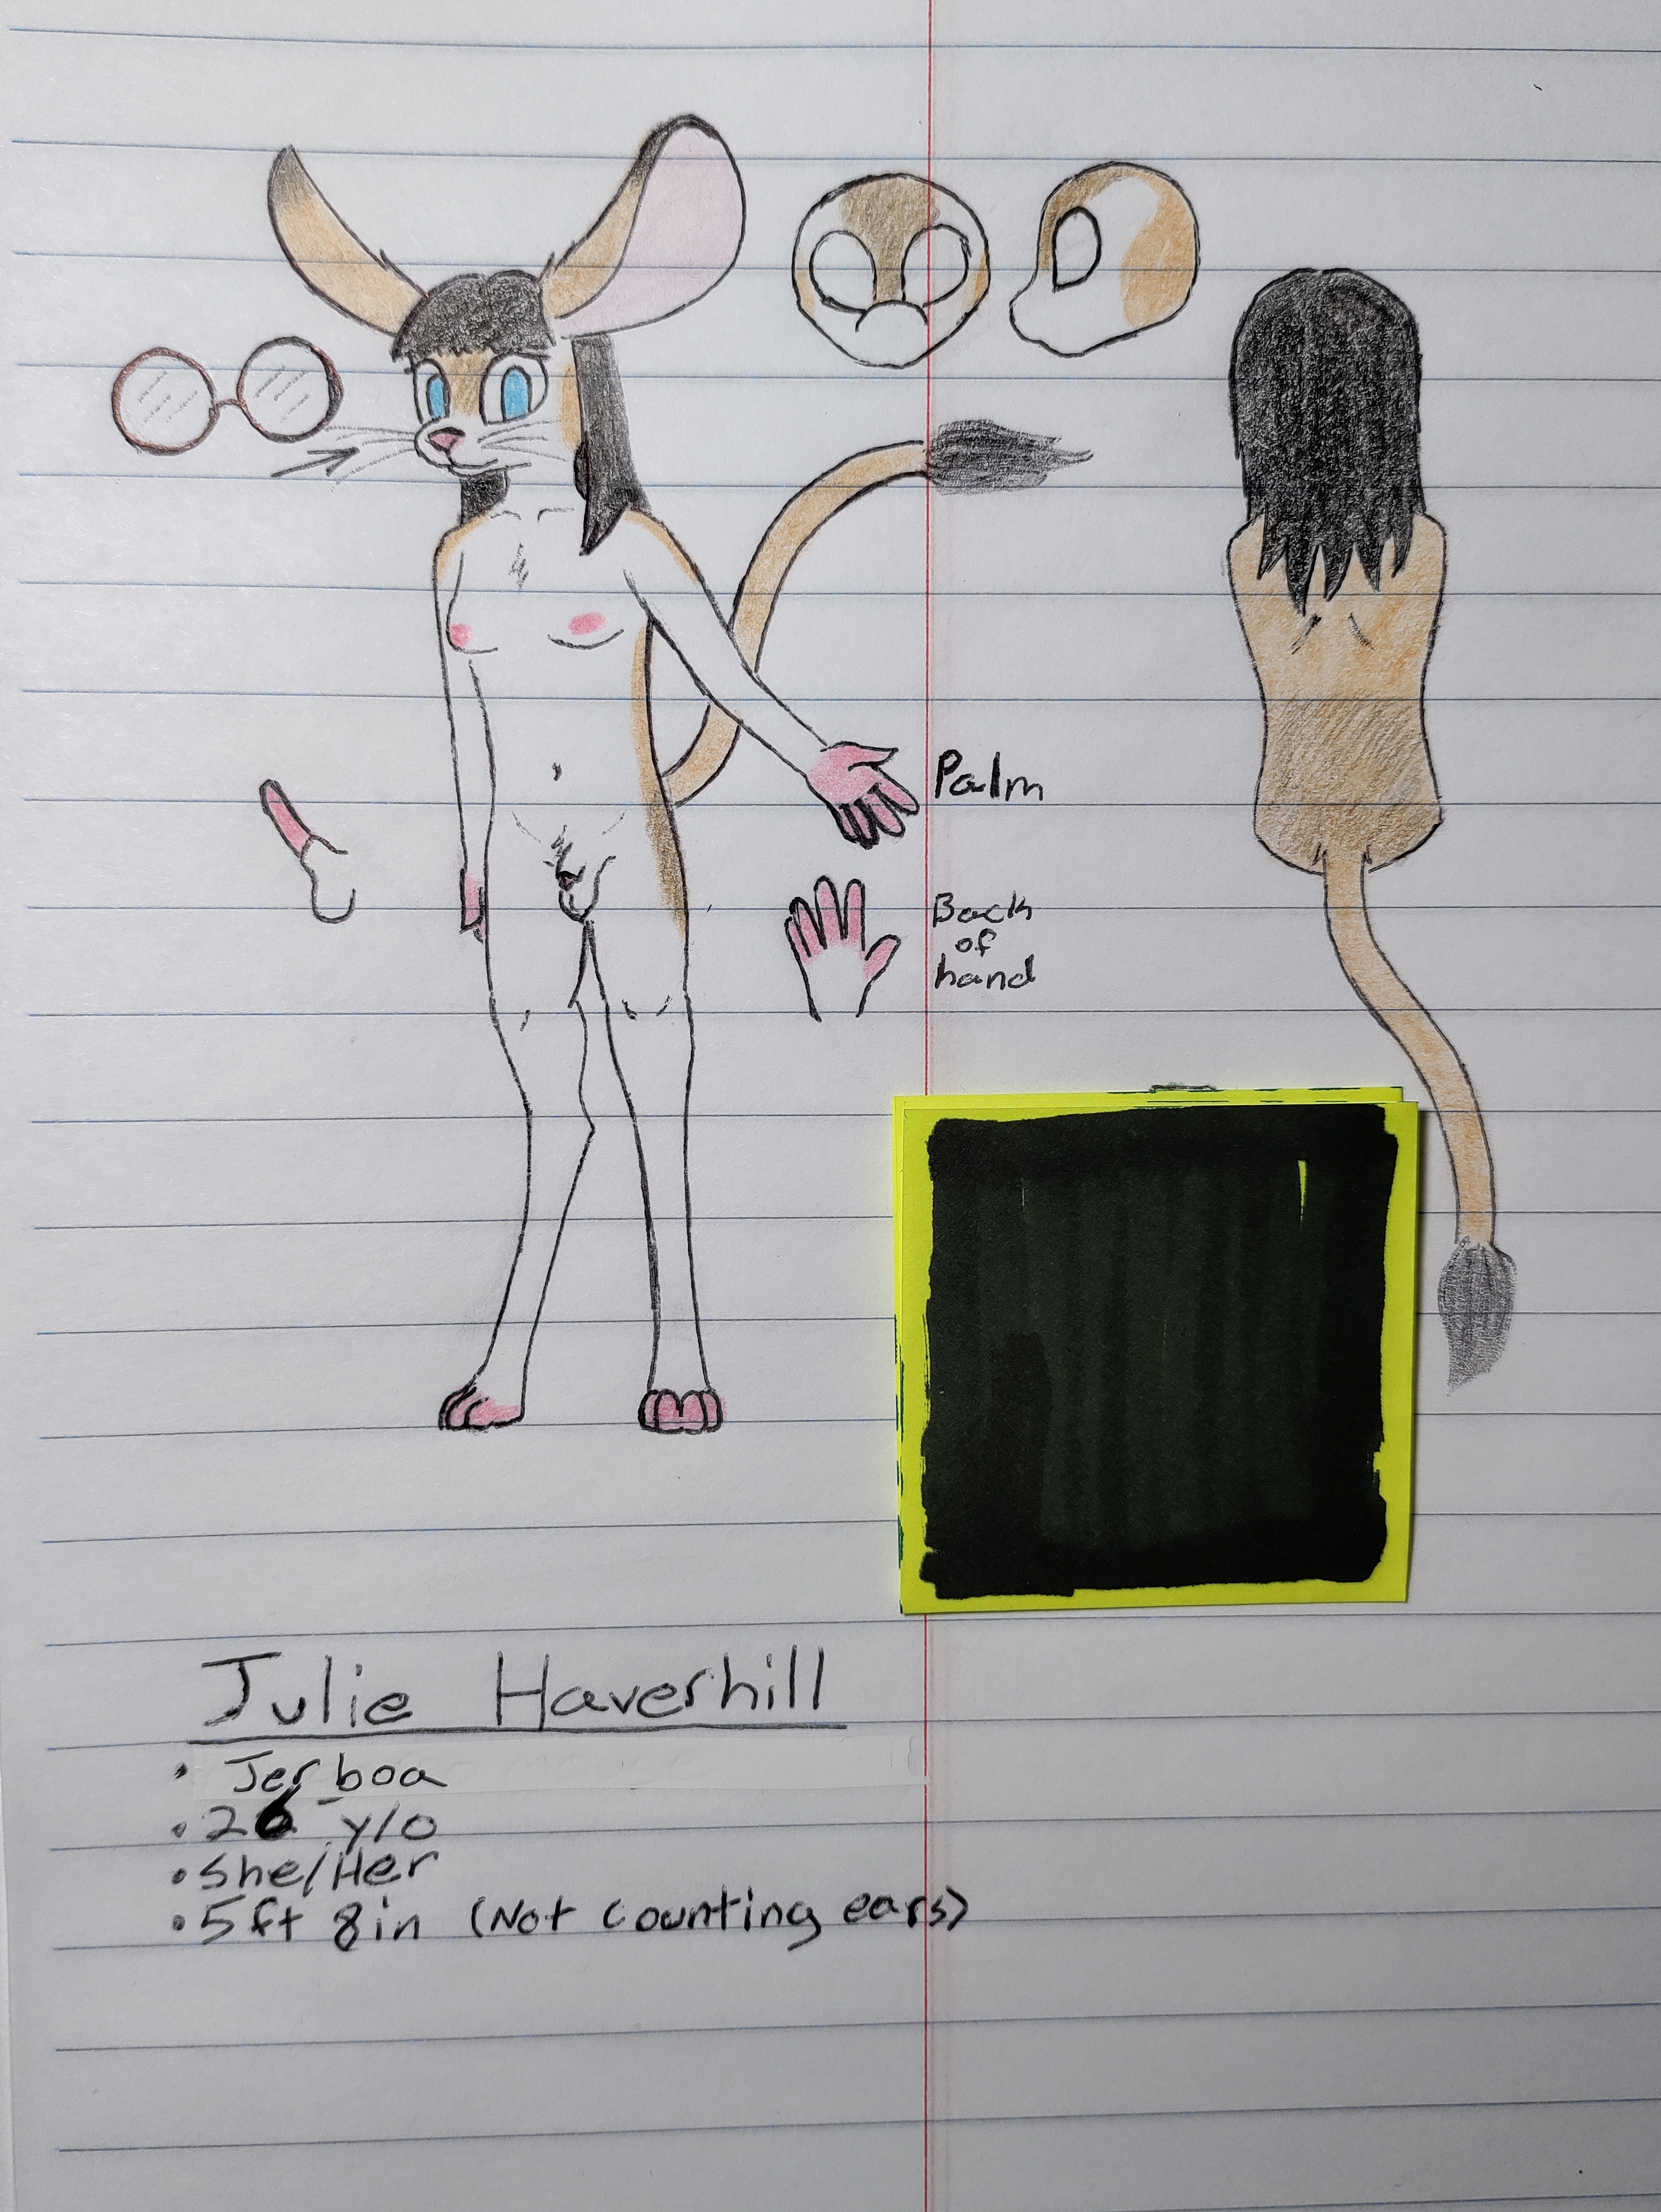 Palm
Back
of
hand
Julie Haverhill
• Jerboa
• 26 y/o
• She/Her
• 5ft 8in (Not counting ears)